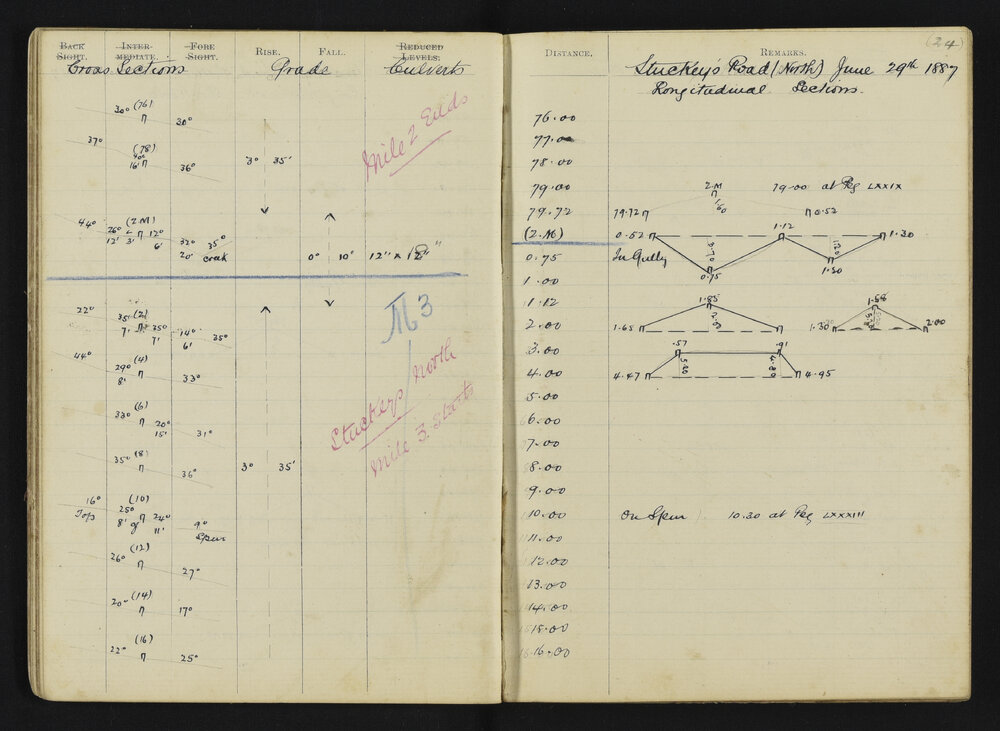 BACK SIGHT. INTER-MEDIATE. FORE SIGHT. RISE. FALL. REDUCED LEVELS.
Cross Sections Grade Culverts
30° (76)
30°
37° (78)
40°
16' 36° 3° 35'
Mile 2 Ends
44° (2 M)
26° 12°
12' 3' 6' 32° 35°
20' creek 0° 10° 12" x 12"
22° M 3
35° (2)
7' 35° 14° 35°
7' 6'
44° (4)
29°
8' 33°
Stuckeys / North
Mile 3 Starts
33° (6)
20°
15' 31°
35° (8)
36° 3° 35'
16° (10)
Top 25° 24° 9°
8' 9' 11' Spur
26° (12)
27°
20° (14)
17°
22° (16)
25°
(24)
DISTANCE. REMARKS.
Stuckey's Road (North) June 29th 1887
Longitudinal Sections.
76.00
77.00
78.00
79.00 2 M 79.00 at Peg LXXIX
1.60
79.72 79.72 0.52
(2.M) 0.52 1.12 1.30
3.70 1.20
0.75 In Gully 0.75 1.30
1.00
1.12 1.85 1.58
2.00 1.65 1.30 2.00
3.00 .57 .91
5.20 4.80
4.00 4.47 4.95
5.00
6.00
7.00
8.00
9.00
10.00 On Spur 10.30 at Peg LXXXIII
11.00
12.00
13.00
14.00
15.00
16.00